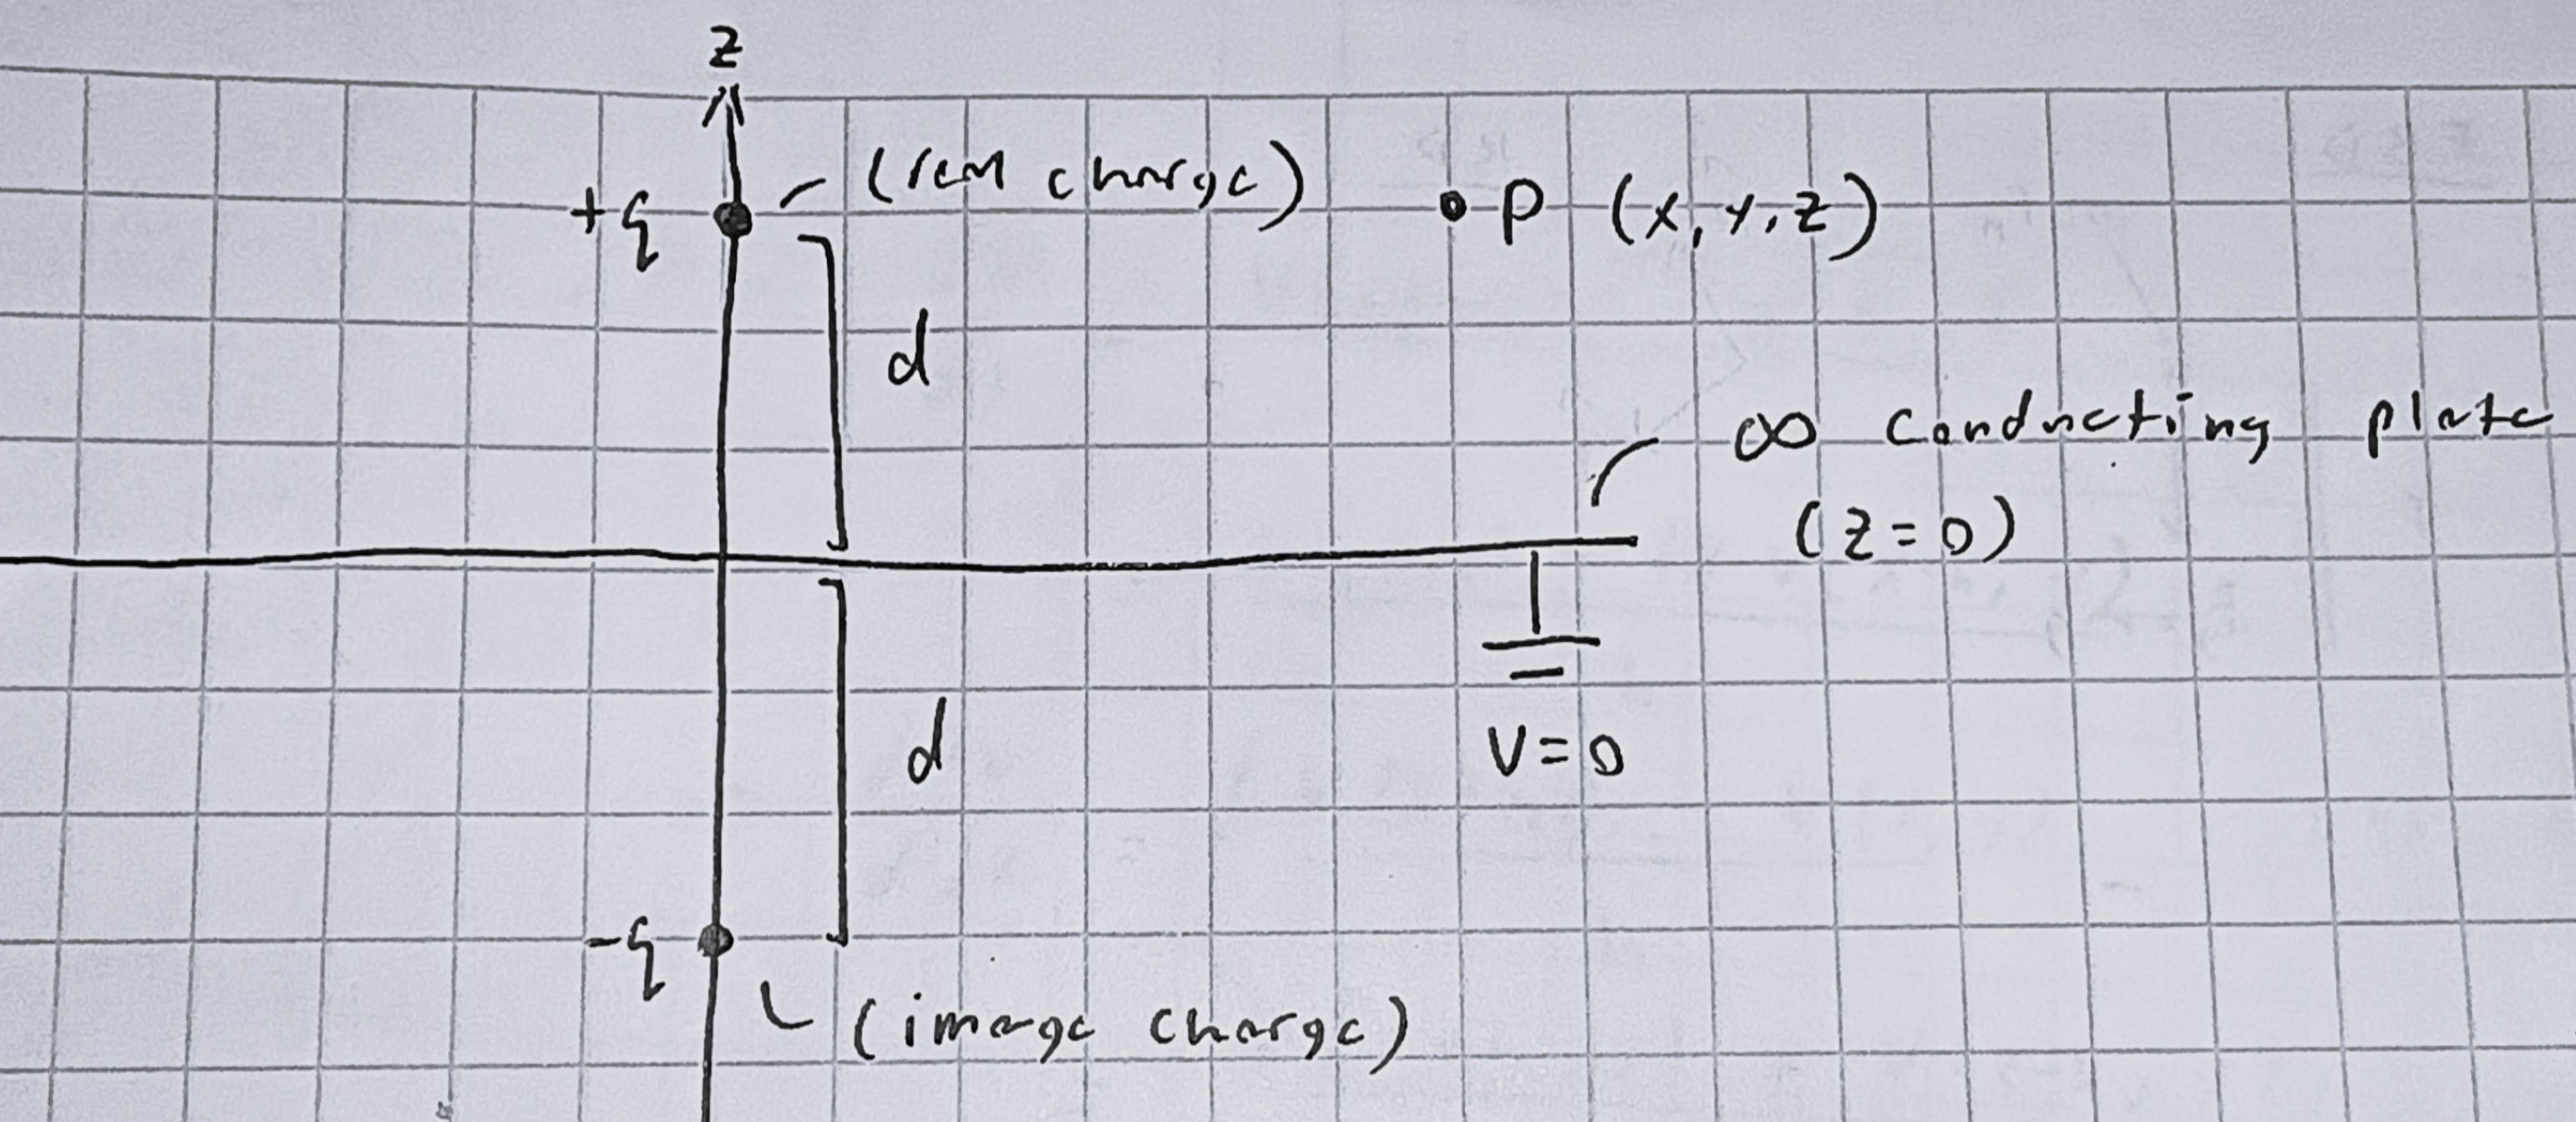 z
+q
(real charge)
P (x,y,z)
d
∞ conducting plate
(z=0)
d
V=0
-q
(image charge)